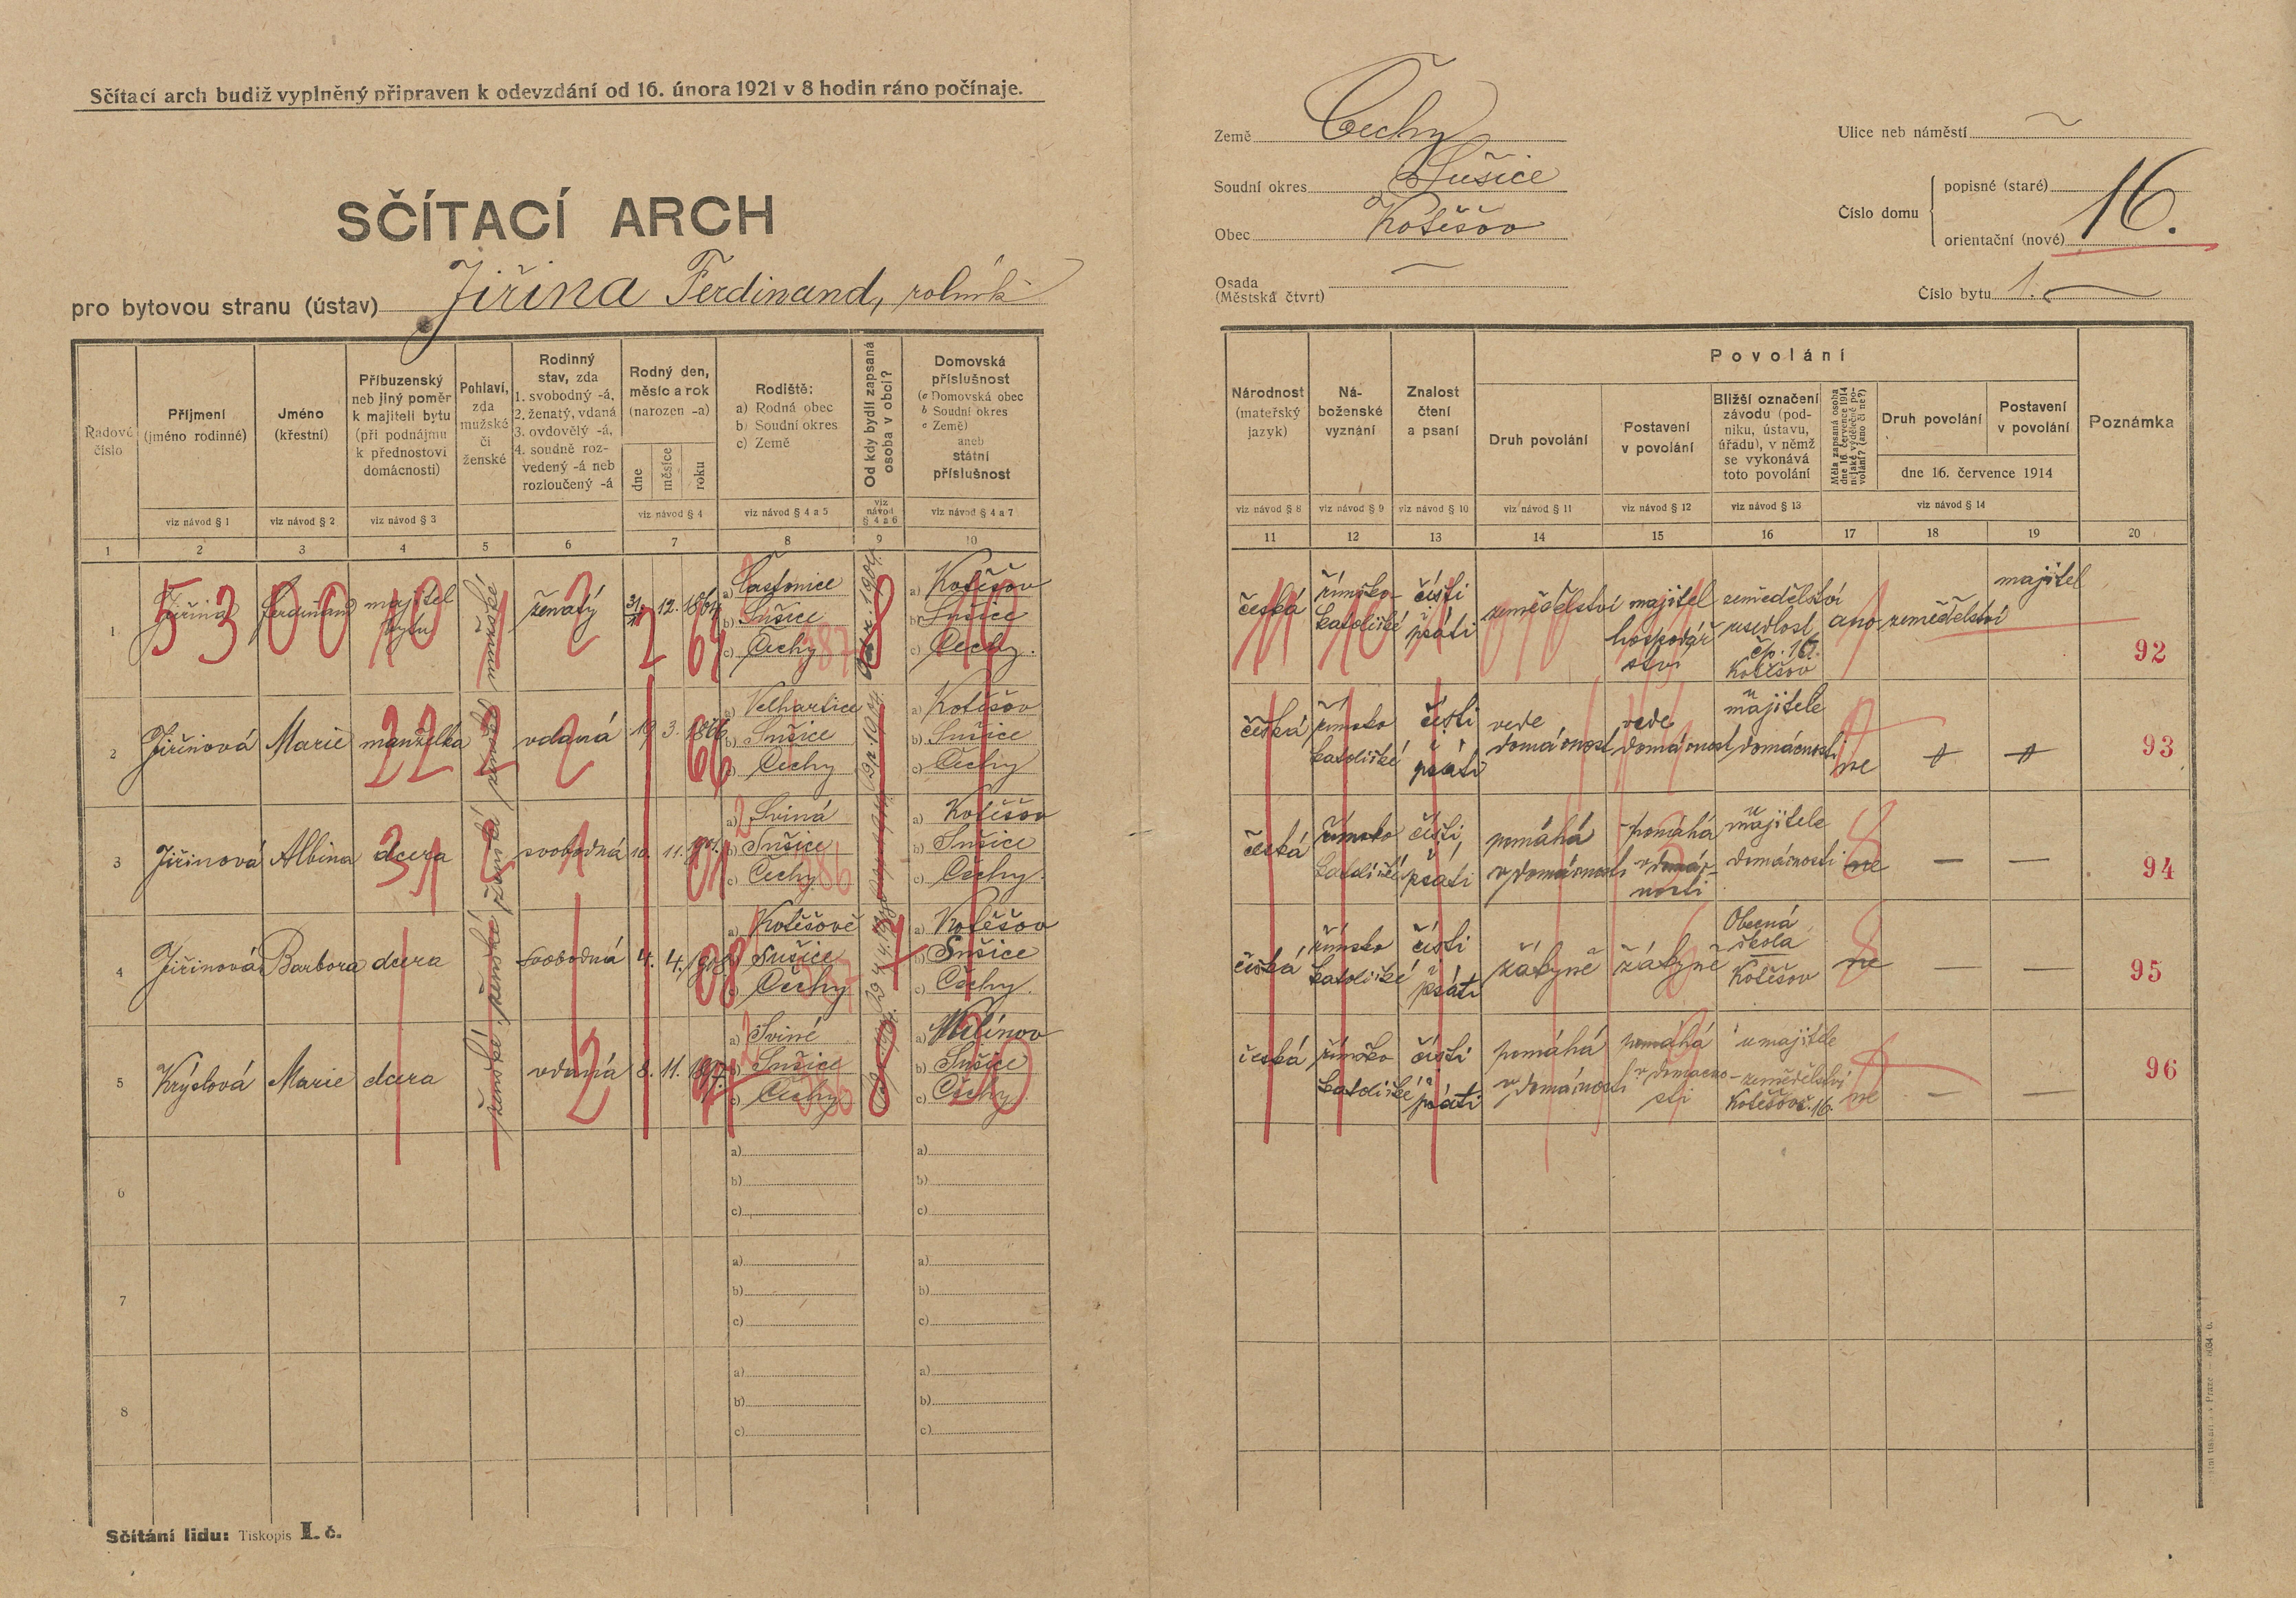 Sčítací arch budiž vyplněný připraven k odevzdání od 16. února 1921 v 8 hodin ráno počínaje.
SČÍTACÍ ARCH
pro bytovou stranu (ústav) Jiřina Ferdinand, rolník
Země Čechy
Soudní okres Sušice
Obec Kotěšov
Osada
(Městská čtvrt)
Ulice neb náměstí
Číslo domu
popisné (staré)
orientační (nové)
16.
Číslo bytu 1.
Řadové číslo
Příjmení (jméno rodinné)
viz návod § 1
Jméno (křestní)
viz návod § 2
Příbuzenský neb jiný poměr k majiteli bytu (při podnájmu k přednostovi domácnosti)
viz návod § 3
Pohlaví, zda mužské či ženské
Rodinný stav, zda
1. svobodný -á,
2. ženatý, vdaná
3. ovdovělý -á,
4. soudně rozvedený -á neb rozloučený -á
Rodný den, měsíc a rok (narozen -a)
dne
měsíce
roku
viz návod § 4
Rodiště:
a) Rodná obec
b) Soudní okres
c) Země
viz návod § 4 a 5
Od kdy bydlí zapsaná osoba v obci?
viz návod § 4 a 6
Domovská příslušnost
(a Domovská obec
b Soudní okres
c Země)
aneb
státní příslušnost
viz návod § 4 a 7
Národnost (mateřský jazyk)
viz návod § 8
Náboženské vyznání
viz návod § 9
Znalost čtení a psaní
viz návod § 10
Povolání
Druh povolání
viz návod § 11
Postavení v povolání
viz návod § 12
Bližší označení závodu (podniku, ústavu, úřadu), v němž se vykonává toto povolání
viz návod § 13
Měla zapsaná osoba dne 16. července 1914 nějaké výdělečné povolání? (ano či ne?)
Druh povolání
Postavení v povolání
dne 16. července 1914
viz návod § 14
Poznámka
1 2 3 4 5 6 7 8 9 10 11 12 13 14 15 16 17 18 19 20
1 Jiřina Ferdinand majitel bytu mužské ženatý 31. 12. 1864
b) Sušice
c) Čechy
a) Kotěšov
b) Sušice
c) Čechy.
česká římsko-katolické čísti psáti zemědělství majitel hospodářství zemědělství usedlost čp. 16. Kotěšov ano zemědělství majitel 92
2 Jiřinová Marie manželka ženské vdaná 19. 3. 1866
a) Velhartice
b) Sušice
c) Čechy
a) Kotěšov
b) Sušice
c) Čechy
česká římsko katolické čísti psáti vede domácnost vede domácnost u majitele domácnosti ne 93
3 Jiřinová Albina dcera ženské svobodná 10. 11. 1901.
a) Sviná
b) Sušice
c) Čechy
a) Kotěšov
b) Sušice
c) Čechy.
česká římsko katolické čísti, psáti pomáhá v domácnosti pomáhá v domácnosti u majitele domácnosti ne — — 94
4 Jiřinová Barbora dcera ženské svobodná 4. 4. 1908
a) Kotěšově
b) Sušice
c) Čechy
a) Kotěšov
b) Sušice
c) Čechy.
česká římsko katolické čísti psáti žákyně žákyně Obecná škola Kotěšov ne — — 95
5 Krýslová Marie dcera ženské vdaná 8. 11. 1897.
a) Sviné
b) Sušice
c) Čechy
b) Sušice
c) Čechy
česká římsko katolické čísti psáti pomáhá v domácnosti pomáhá v domácnosti u majitele zemědělství Kotěšov č. 16. ne — — 96
6
a)
b)
c)
a)
b)
c)
7
a)
b)
c)
a)
b)
c)
8
a)
b)
c)
a)
b)
c)
Sčítání lidu: Tiskopis I. č.